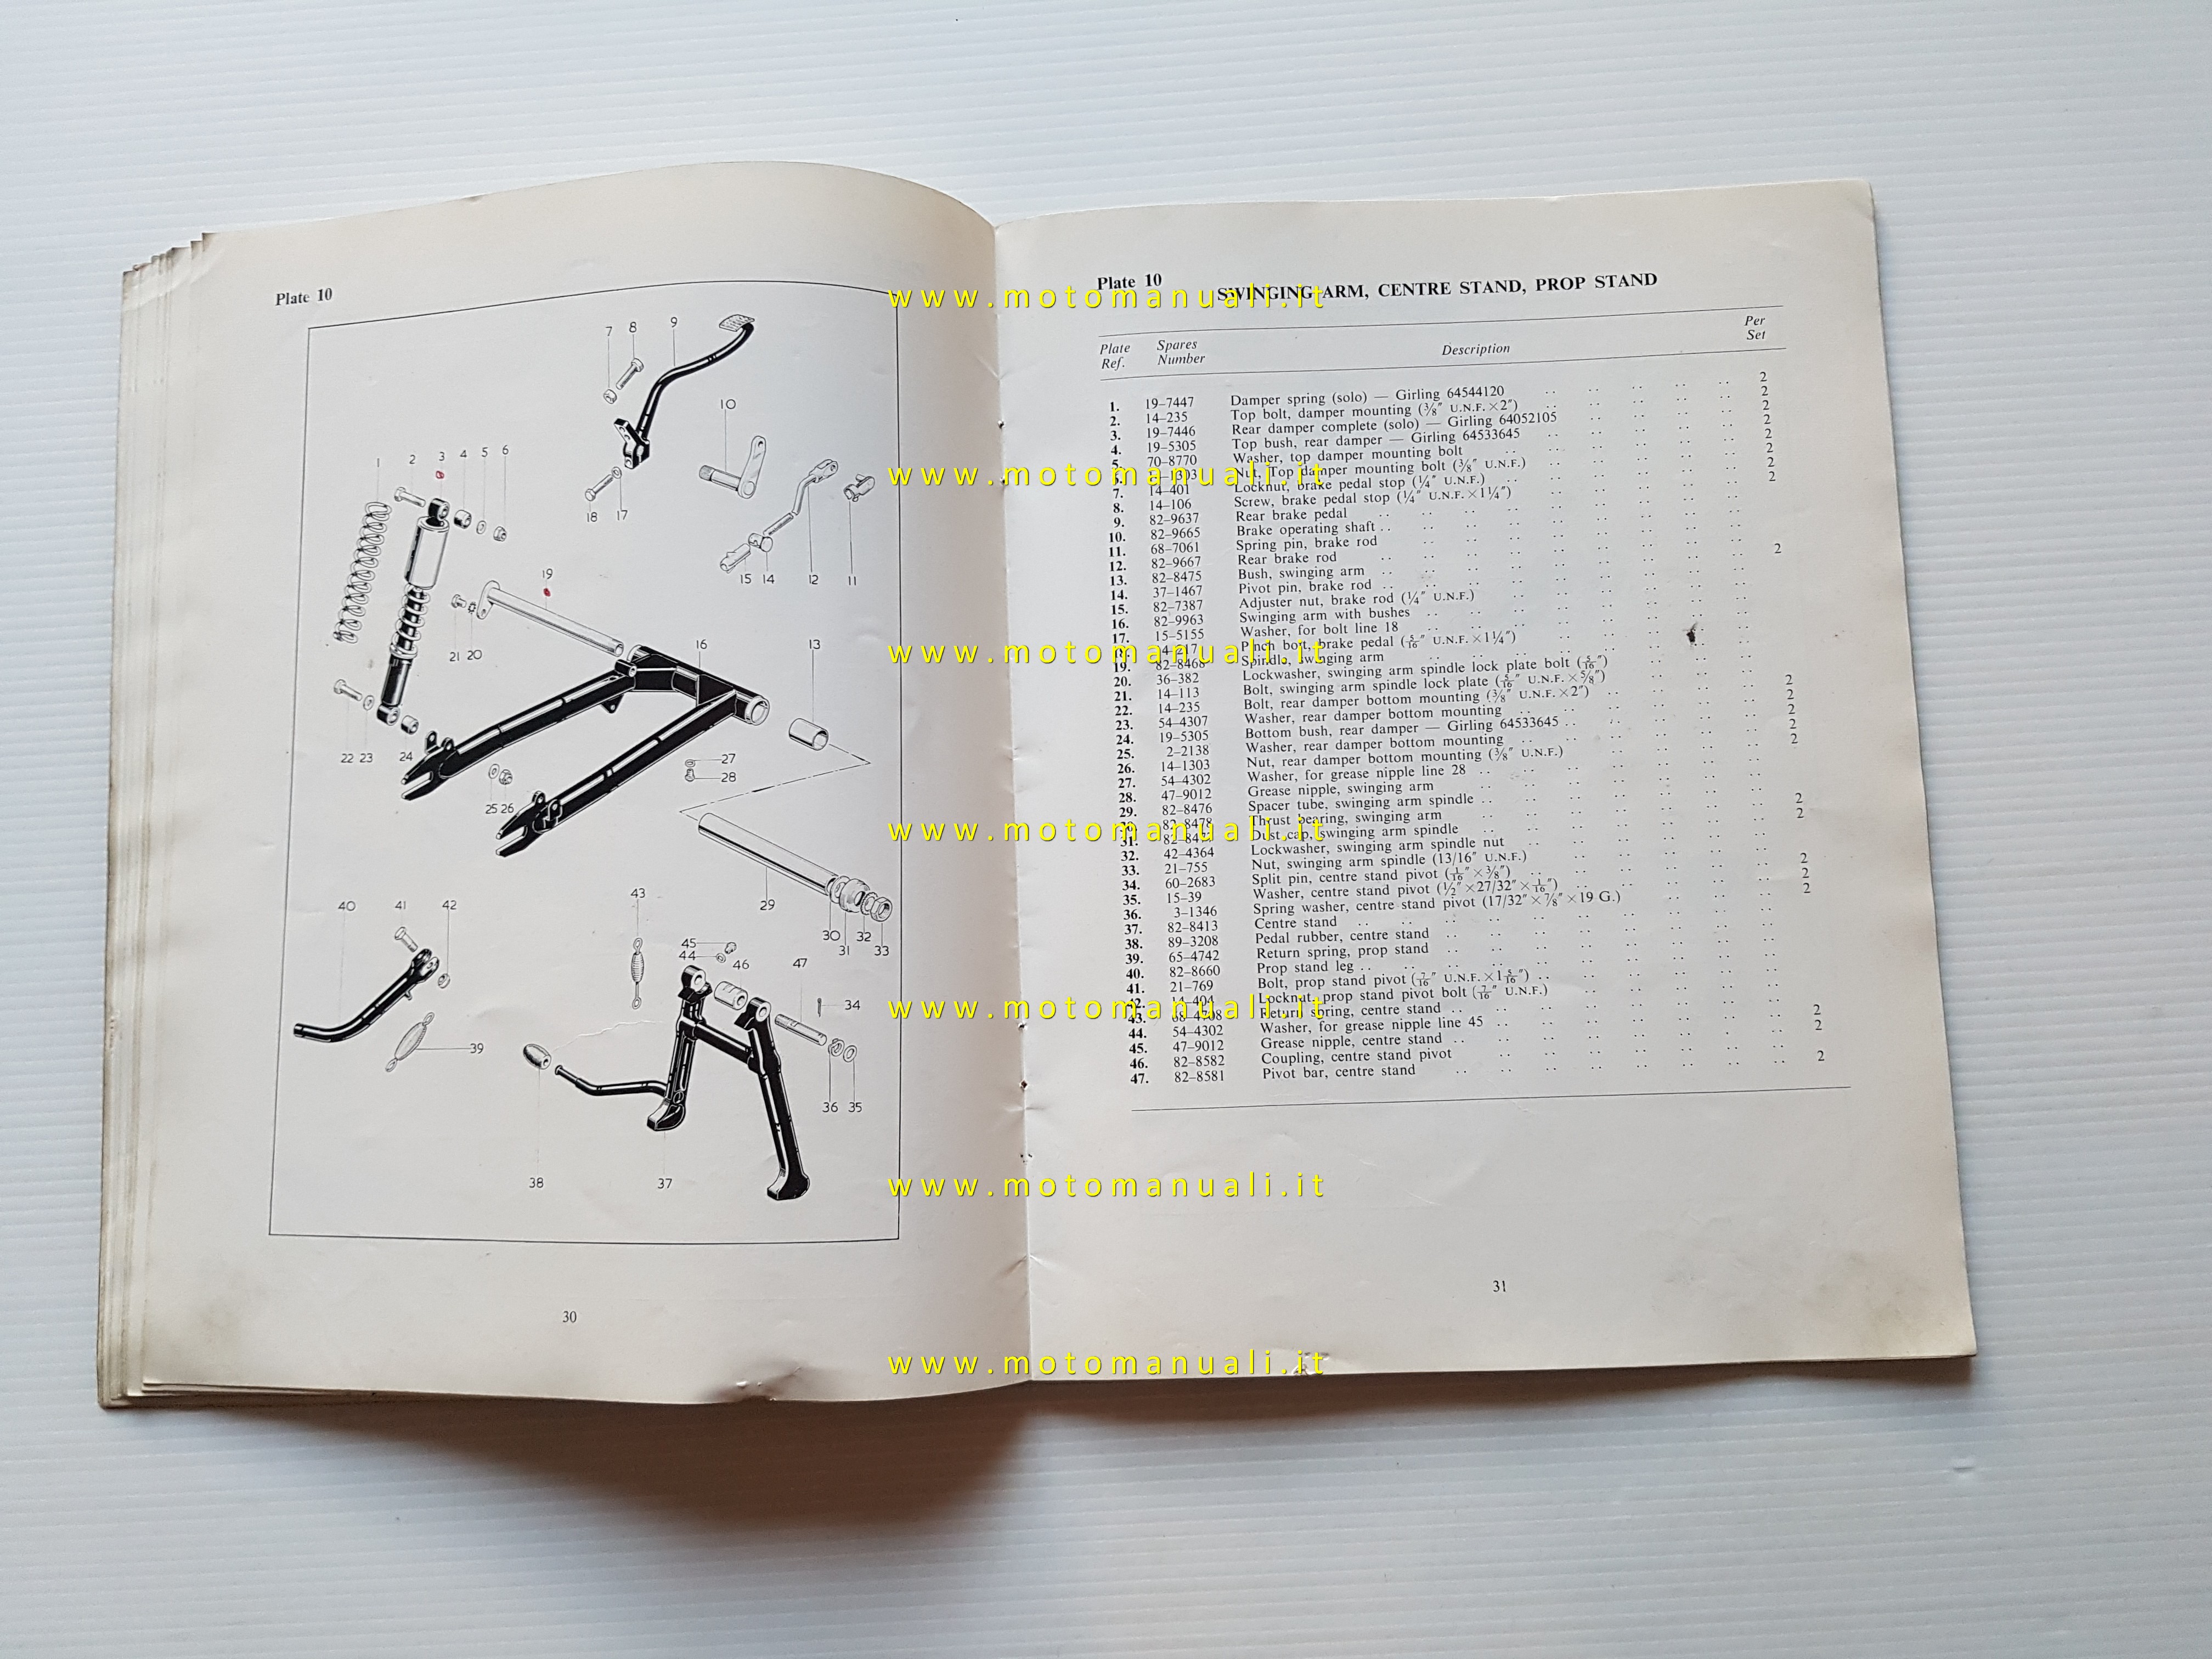 Plate 10
7 8 9
10
1 2 3 4 5 6
18 17
15 14 12 11
19
21 20
16 13
22 23 24
25 26
27
28
29
30 31 32 33
40 41 42
43
45
44
46 47
34
39
36 35
38 37
30
Plate 10
SWINGING ARM, CENTRE STAND, PROP STAND
Plate Ref. Spares Number Description Per Set
1. 19–7447 Damper spring (solo) — Girling 64544120 .. .. .. .. .. 2
2. 14–235 Top bolt, damper mounting (⅜″ U.N.F. ×2″) .. .. .. .. .. 2
3. 19–7446 Rear damper complete (solo) — Girling 64052105 .. .. .. .. 2
4. 19–5305 Top bush, rear damper — Girling 64533645 .. .. .. .. .. 2
5. 70–8770 Washer, top damper mounting bolt .. .. .. .. .. 2
Nut, Top damper mounting bolt (⅜″ U.N.F.) .. .. .. .. .. 2
7. 14–401 Locknut, brake pedal stop (¼″ U.N.F.) .. .. .. .. ..
8. 14–106 Screw, brake pedal stop (¼″ U.N.F. ×1¼″) .. .. .. .. ..
9. 82–9637 Rear brake pedal .. .. .. .. .. ..
10. 82–9665 Brake operating shaft .. .. .. .. .. ..
11. 68–7061 Spring pin, brake rod .. .. .. .. .. ..
12. 82–9667 Rear brake rod .. .. .. .. .. ..
13. 82–8475 Bush, swinging arm .. .. .. .. .. .. 2
14. 37–1467 Pivot pin, brake rod .. .. .. .. .. ..
15. 82–7387 Adjuster nut, brake rod (¼″ U.N.F.) .. .. .. .. ..
16. 82–9963 Swinging arm with bushes .. .. .. .. .. ..
17. 15–5155 Washer, for bolt line 18 .. .. .. .. .. ..
18. Pinch bolt, brake pedal (5/16″ U.N.F. ×1¼″) .. .. .. .. ..
19. 82–8468 Spindle, swinging arm .. .. .. .. .. ..
20. 36–382 Lockwasher, swinging arm spindle lock plate bolt (5/16″) .. .. ..
21. 14–113 Bolt, swinging arm spindle lock plate (5/16″ U.N.F. ×⅝″) .. .. ..
22. 14–235 Bolt, rear damper bottom mounting (⅜″ U.N.F. ×2″) .. .. .. .. 2
23. 54–4307 Washer, rear damper bottom mounting .. .. .. .. .. 2
24. 19–5305 Bottom bush, rear damper — Girling 64533645 .. .. .. .. .. 2
25. 2–2138 Washer, rear damper bottom mounting .. .. .. .. .. 2
26. 14–1303 Nut, rear damper bottom mounting (⅜″ U.N.F.) .. .. .. .. .. 2
27. 54–4302 Washer, for grease nipple line 28 .. .. .. .. .. ..
28. 47–9012 Grease nipple, swinging arm .. .. .. .. .. ..
29. 82–8476 Spacer tube, swinging arm spindle .. .. .. .. .. ..
30. 82–8478 Thrust bearing, swinging arm .. .. .. .. .. .. 2
31. Dust cap, swinging arm spindle .. .. .. .. .. .. 2
32. 42–4364 Lockwasher, swinging arm spindle nut .. .. .. .. .. ..
33. 21–755 Nut, swinging arm spindle (13/16″ U.N.F.) .. .. .. .. ..
34. 60–2683 Split pin, centre stand pivot (1/16″ ×⅜″) .. .. .. .. .. 2
35. 15–39 Washer, centre stand pivot (½″ ×27/32″ ×1/16″) .. .. .. .. .. 2
36. 3–1346 Spring washer, centre stand pivot (17/32″ ×⅞″ ×19 G.) .. .. .. 2
37. 82–8413 Centre stand .. .. .. .. .. ..
38. 89–3208 Pedal rubber, centre stand .. .. .. .. .. ..
39. 65–4742 Return spring, prop stand .. .. .. .. .. ..
40. 82–8660 Prop stand leg .. .. .. .. .. ..
41. 21–769 Bolt, prop stand pivot (7/16″ U.N.F. ×1 5/16″) .. .. .. .. ..
42. 14–404 Locknut, prop stand pivot bolt (7/16″ U.N.F.) .. .. .. .. ..
43. 68–4708 Return spring, centre stand .. .. .. .. .. ..
44. 54–4302 Washer, for grease nipple line 45 .. .. .. .. .. .. 2
45. 47–9012 Grease nipple, centre stand .. .. .. .. .. .. 2
46. 82–8582 Coupling, centre stand pivot .. .. .. .. .. ..
47. 82–8581 Pivot bar, centre stand .. .. .. .. .. .. 2
31
www.motomanuali.it
www.motomanuali.it
www.motomanuali.it
www.motomanuali.it
www.motomanuali.it
www.motomanuali.it
www.motomanuali.it